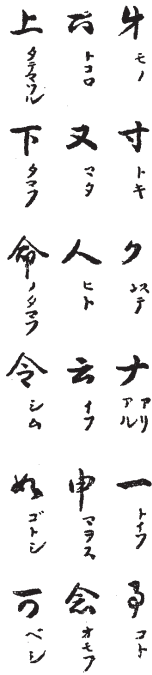 牛 モノ
寸 トキ
ク
ナ アリ アル
一 トイフ
トコロ
又 マタ
人 ヒト
云 イフ
申 マヲス
念 オモフ
上 タテマツル
下 タマフ
命 ノタマフ
令 シム
如 ゴトシ
可 ベシ
コト